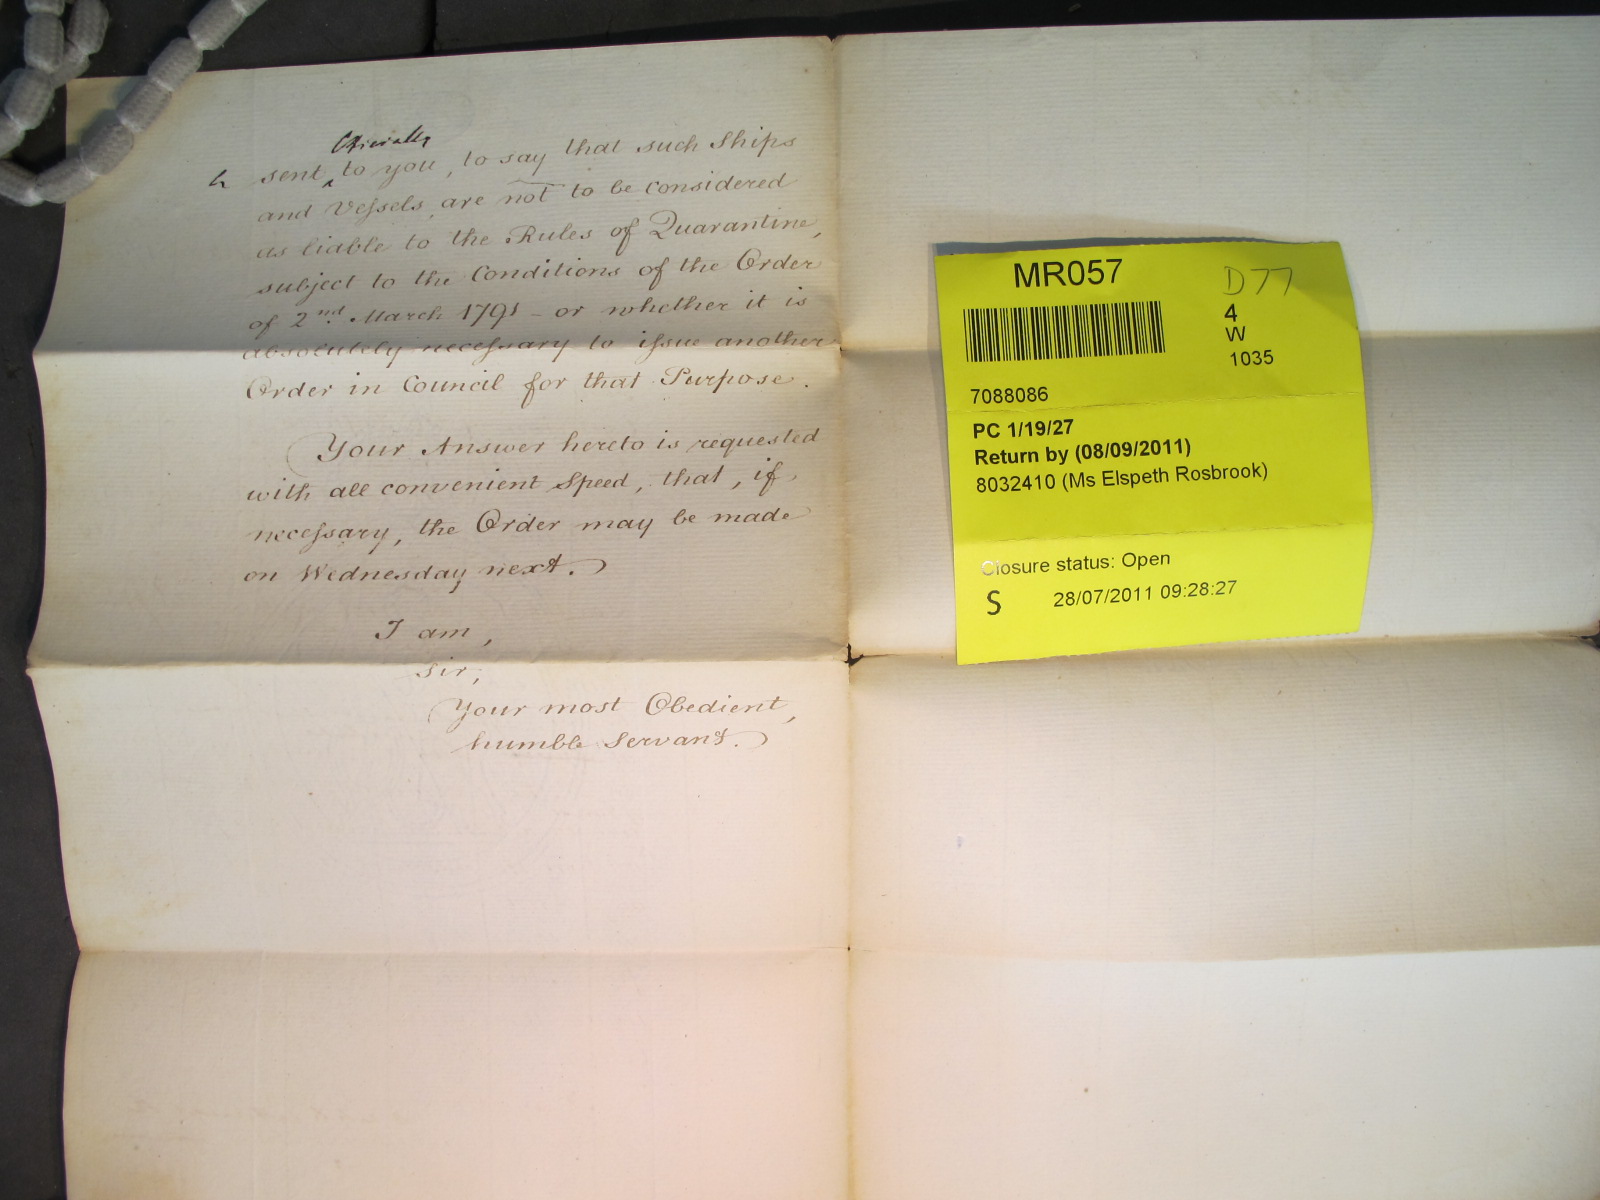 Officially
sent to you, to say that such Ships
and Vessels are not to be considered
as liable to the Rules of Quarantine,
subject to the Conditions of the Order
of 2nd March 1791 - or whether it is
absolutely necessary to issue another
Order in Council for that Purpose.
Your Answer hereto is requested
with all convenient Speed, that, if
necessary, the Order may be made
on Wednesday next.
I am,
Sir,
Your most Obedient,
humble Servant.
MR057
D77
4
W
1035
7088086
PC 1/19/27
Return by (08/09/2011)
8032410 (Ms Elspeth Rosbrook)
Closure status: Open
S 28/07/2011 09:28:27